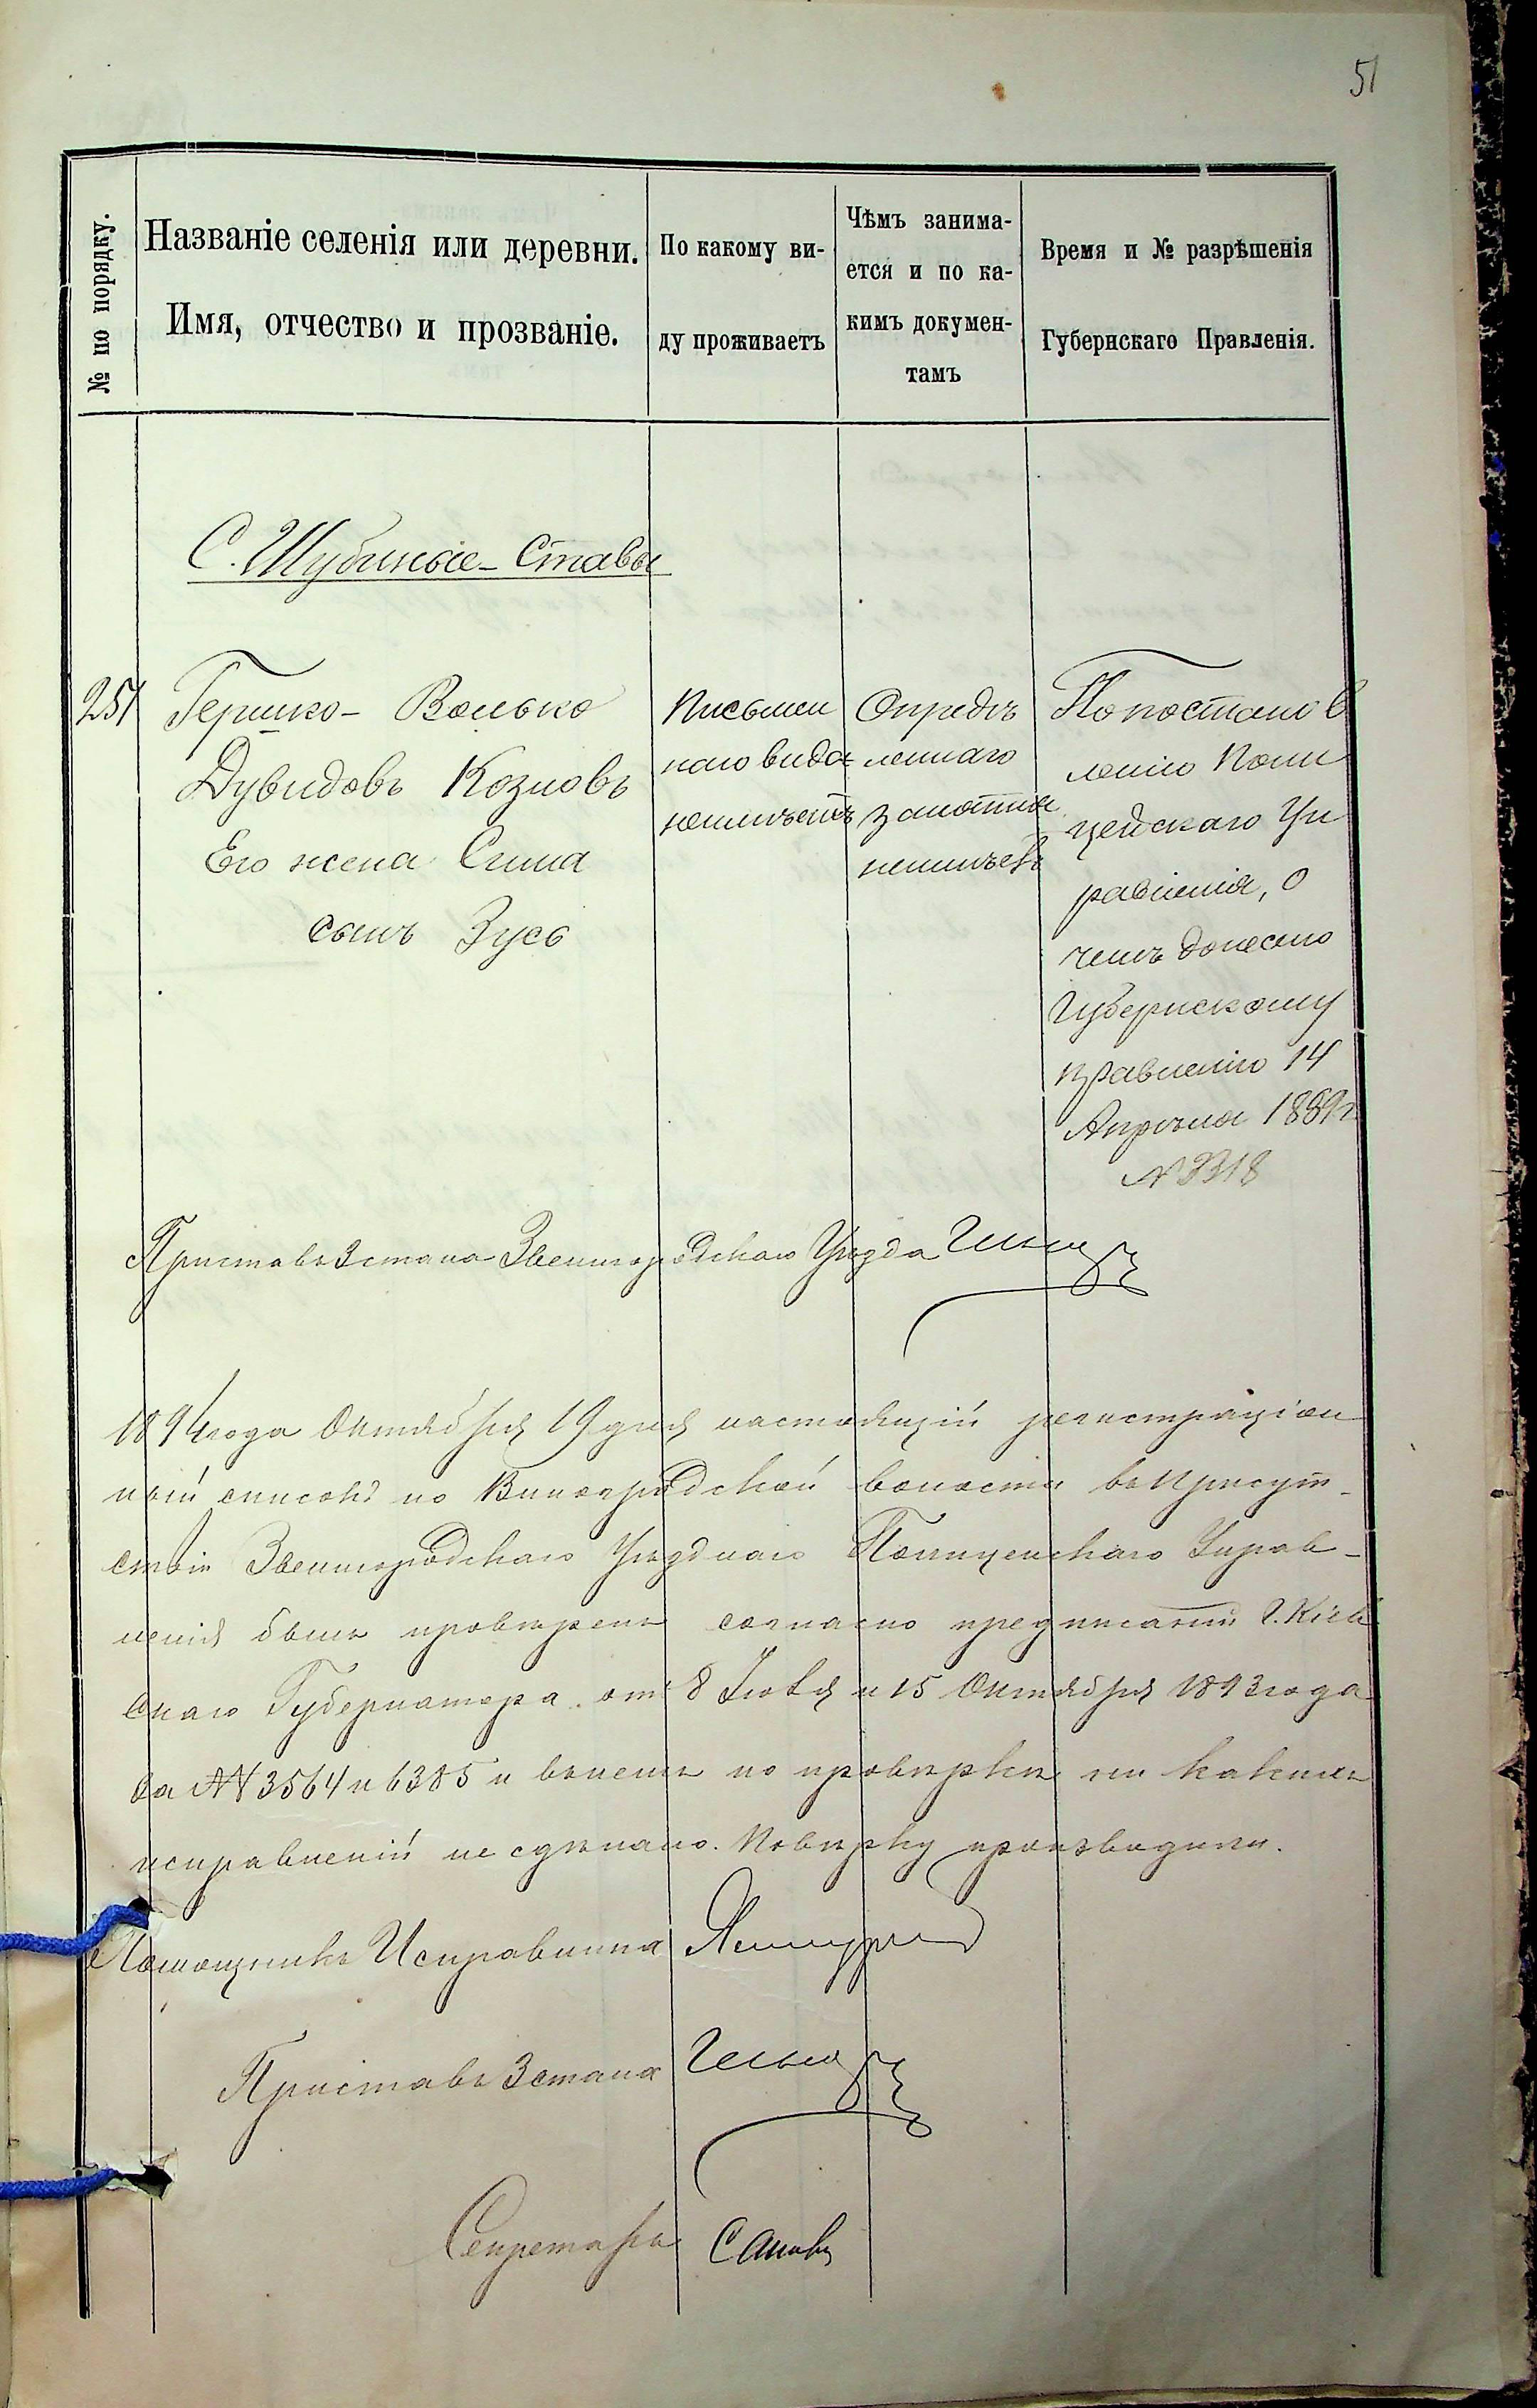 51
№ по порядку.
Названіе селенія или деревни.
Имя, отчество и прозваніе.
По какому ви-
ду проживаетъ
Чѣмъ занима-
ется и по ка-
кимъ докумен-
тамъ
Время и № разрѣшенія
Губернскаго Правленія.
С. Шубиные-Ставы
251
Гершко- Волько
Дувидовъ Козловъ
Его жена Сима
сынъ Зусь
Письмен
наго вида
неимѣетъ
Опредѣ
леннаго
занятия
неимѣетъ
По постанов
лению Поли
цейскаго Уп
равленія, о
чемъ донесено
Губернскому
правленію 14
Апрѣля 1889 г.
№ 3318
Приставъ 3 стана Звенигородскаго Уѣзда
1894 года Октября 19 дня настоящій регистраціон
ный списокъ по Виноградской волости въ Присут-
ствіи Звенигородскаго Уѣзднаго Полицейскаго Управ-
ленія былъ провѣренъ согласно предписаній Г. Кіев
скаго Губернатора от 8 Іюля и 15 Октября 1893 года
за №№ 3564 и 6385 и въ немъ по провѣркѣ ни какихъ
исправленій не сдѣлано. Повѣрку производили.
Помощникъ Исправника
Приставъ 3 стана
Секретарь